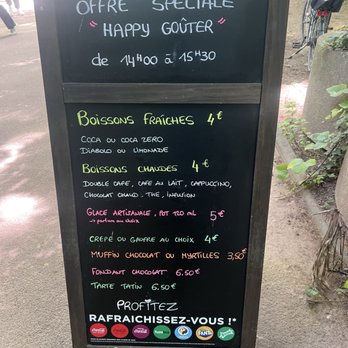 OFFRE SPÉCIALE
" HAPPY GOÛTER "
de 14H00 à 15H30
BOISSONS FRAÎCHES 4€
COCA OU COCA ZERO
DIABOLO OU LIMONADE
BOISSONS CHAUDES 4€
DOUBLE CAFÉ, CAFÉ AU LAIT, CAPPUCCINO,
CHOCOLAT CHAUD, THÉ, INFUSION
GLACE ARTISANALE, POT 120 ML 5€
→ parfum au choix
CRÊPE OU GAUFRE AU CHOIX 4€
MUFFIN CHOCOLAT OU MYRTILLES 3,50€
FONDANT CHOCOLAT 6.50€
TARTE TATIN 6.50€
PROFITEZ
RAFRAICHISSEZ-VOUS !*